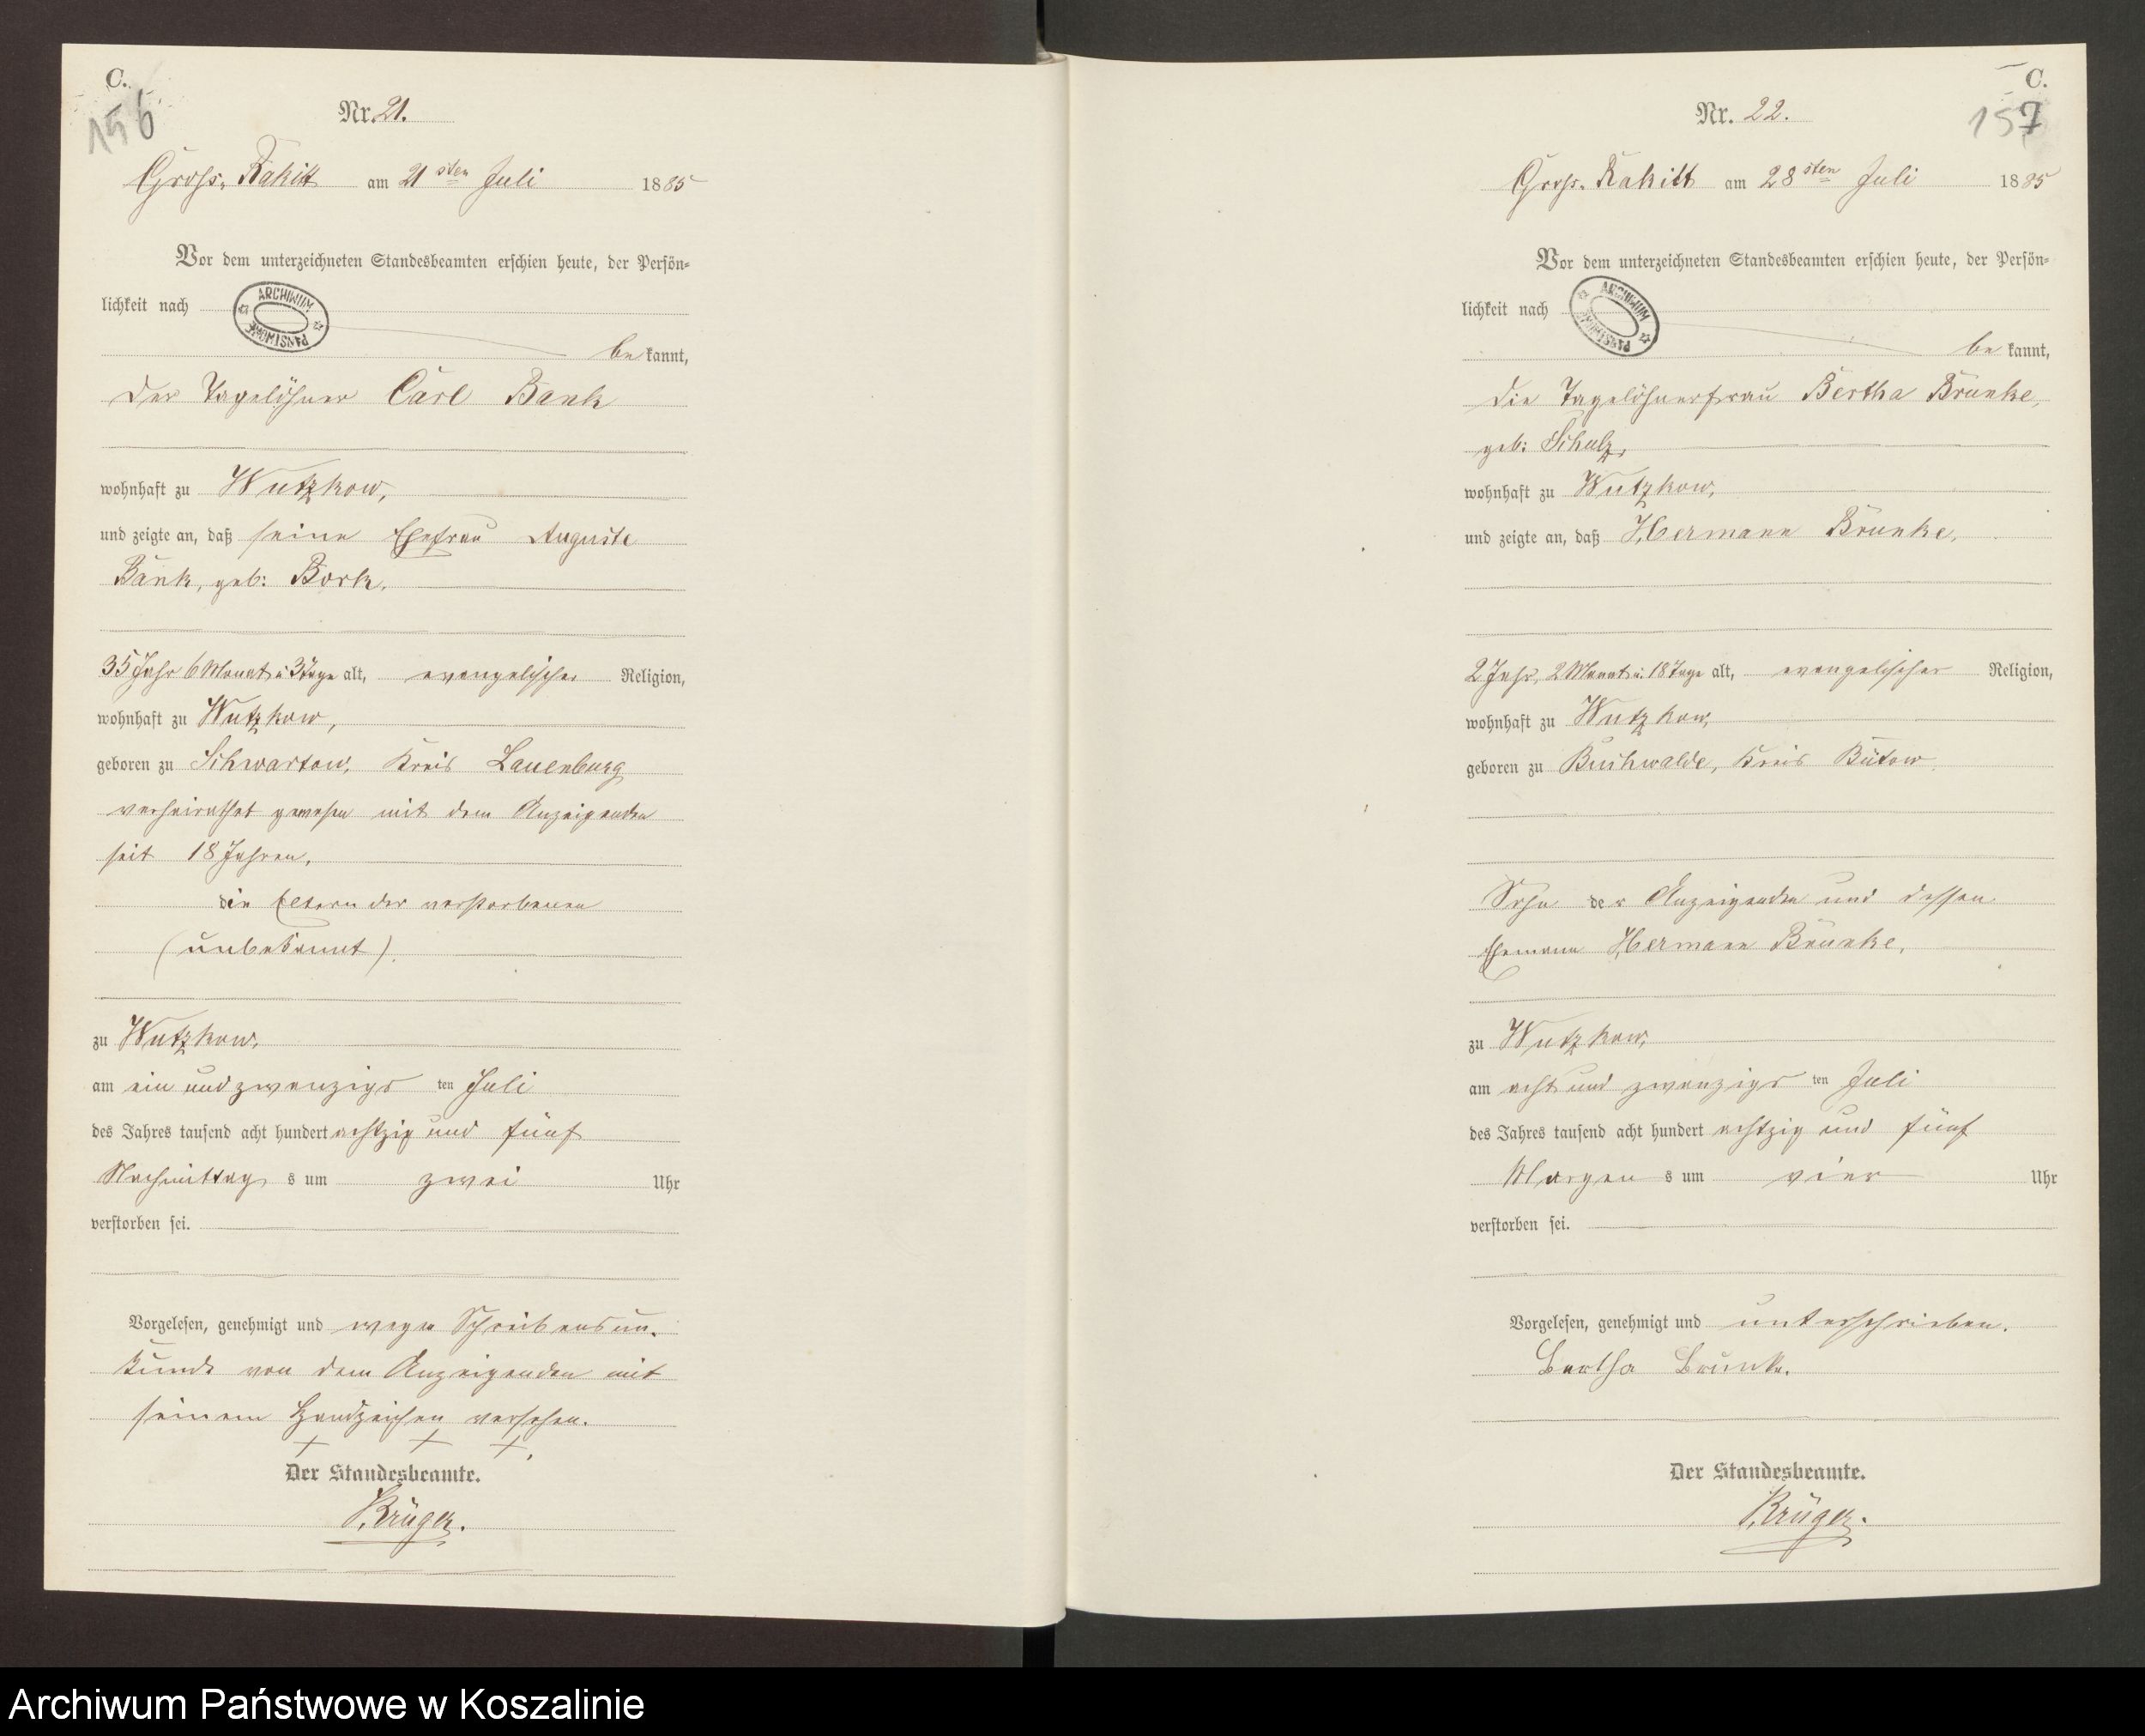 C.
156
Nr. 21.
Gross. Rakitt am 21sten Juli 1885
Vor dem unterzeichneten Standesbeamten erschien heute, der Persön-
lichkeit nach
ARCHIWUM PAŃSTWOWE
be kannt,
der Tagelöhner Carl Bank
wohnhaft zu Wutzkow,
und zeigte an, daß seine Ehefrau Auguste
Bank, geb: Bork,
35 Jahr 6 Monat u 3 Tage alt, evangelischer Religion,
wohnhaft zu Wutzkow,
geboren zu Schwartow, Kreis Lauenburg
verheirathet gewesen mit dem Anzeigenden
seit 18 Jahren,
die Eltern der verstorbenen
(unbekannt).
zu Wutzkow,
am ein und zwanzigs ten Juli
des Jahres tausend acht hundert achtzig und fünf
Nachmittag s um zwei Uhr
verstorben sei.
Vorgelesen, genehmigt und wegen Schreibensun-
kunde von dem Anzeigenden mit
seinem Handzeichen versehen.
+ + +.
Der Standesbeamte.
Krüger.
C.
157
Nr. 22.
Gross. Rakitt am 28sten Juli 1885
Vor dem unterzeichneten Standesbeamten erschien heute, der Persön-
lichkeit nach
ARCHIWUM PAŃSTWOWE
be kannt,
die Tagelöhnerfrau Bertha Brunke,
geb: Schulz,
wohnhaft zu Wutzkow,
und zeigte an, daß Hermann Brunke,
2 Jahr, 2 Monat u: 18 Tage alt, evangelischer Religion,
wohnhaft zu Wutzkow,
geboren zu Buchwalde, Kreis Bütow
Sohn der Anzeigenden und dessen
Ehemann Hermann Brunke,
zu Wutzkow,
am acht und zwanzigs ten Juli
des Jahres tausend acht hundert achtzig und fünf
Morgen s um vier Uhr
verstorben sei.
Vorgelesen, genehmigt und unterschrieben.
Bertha Brunke.
Der Standesbeamte.
Krüger.
Archiwum Państwowe w Koszalinie